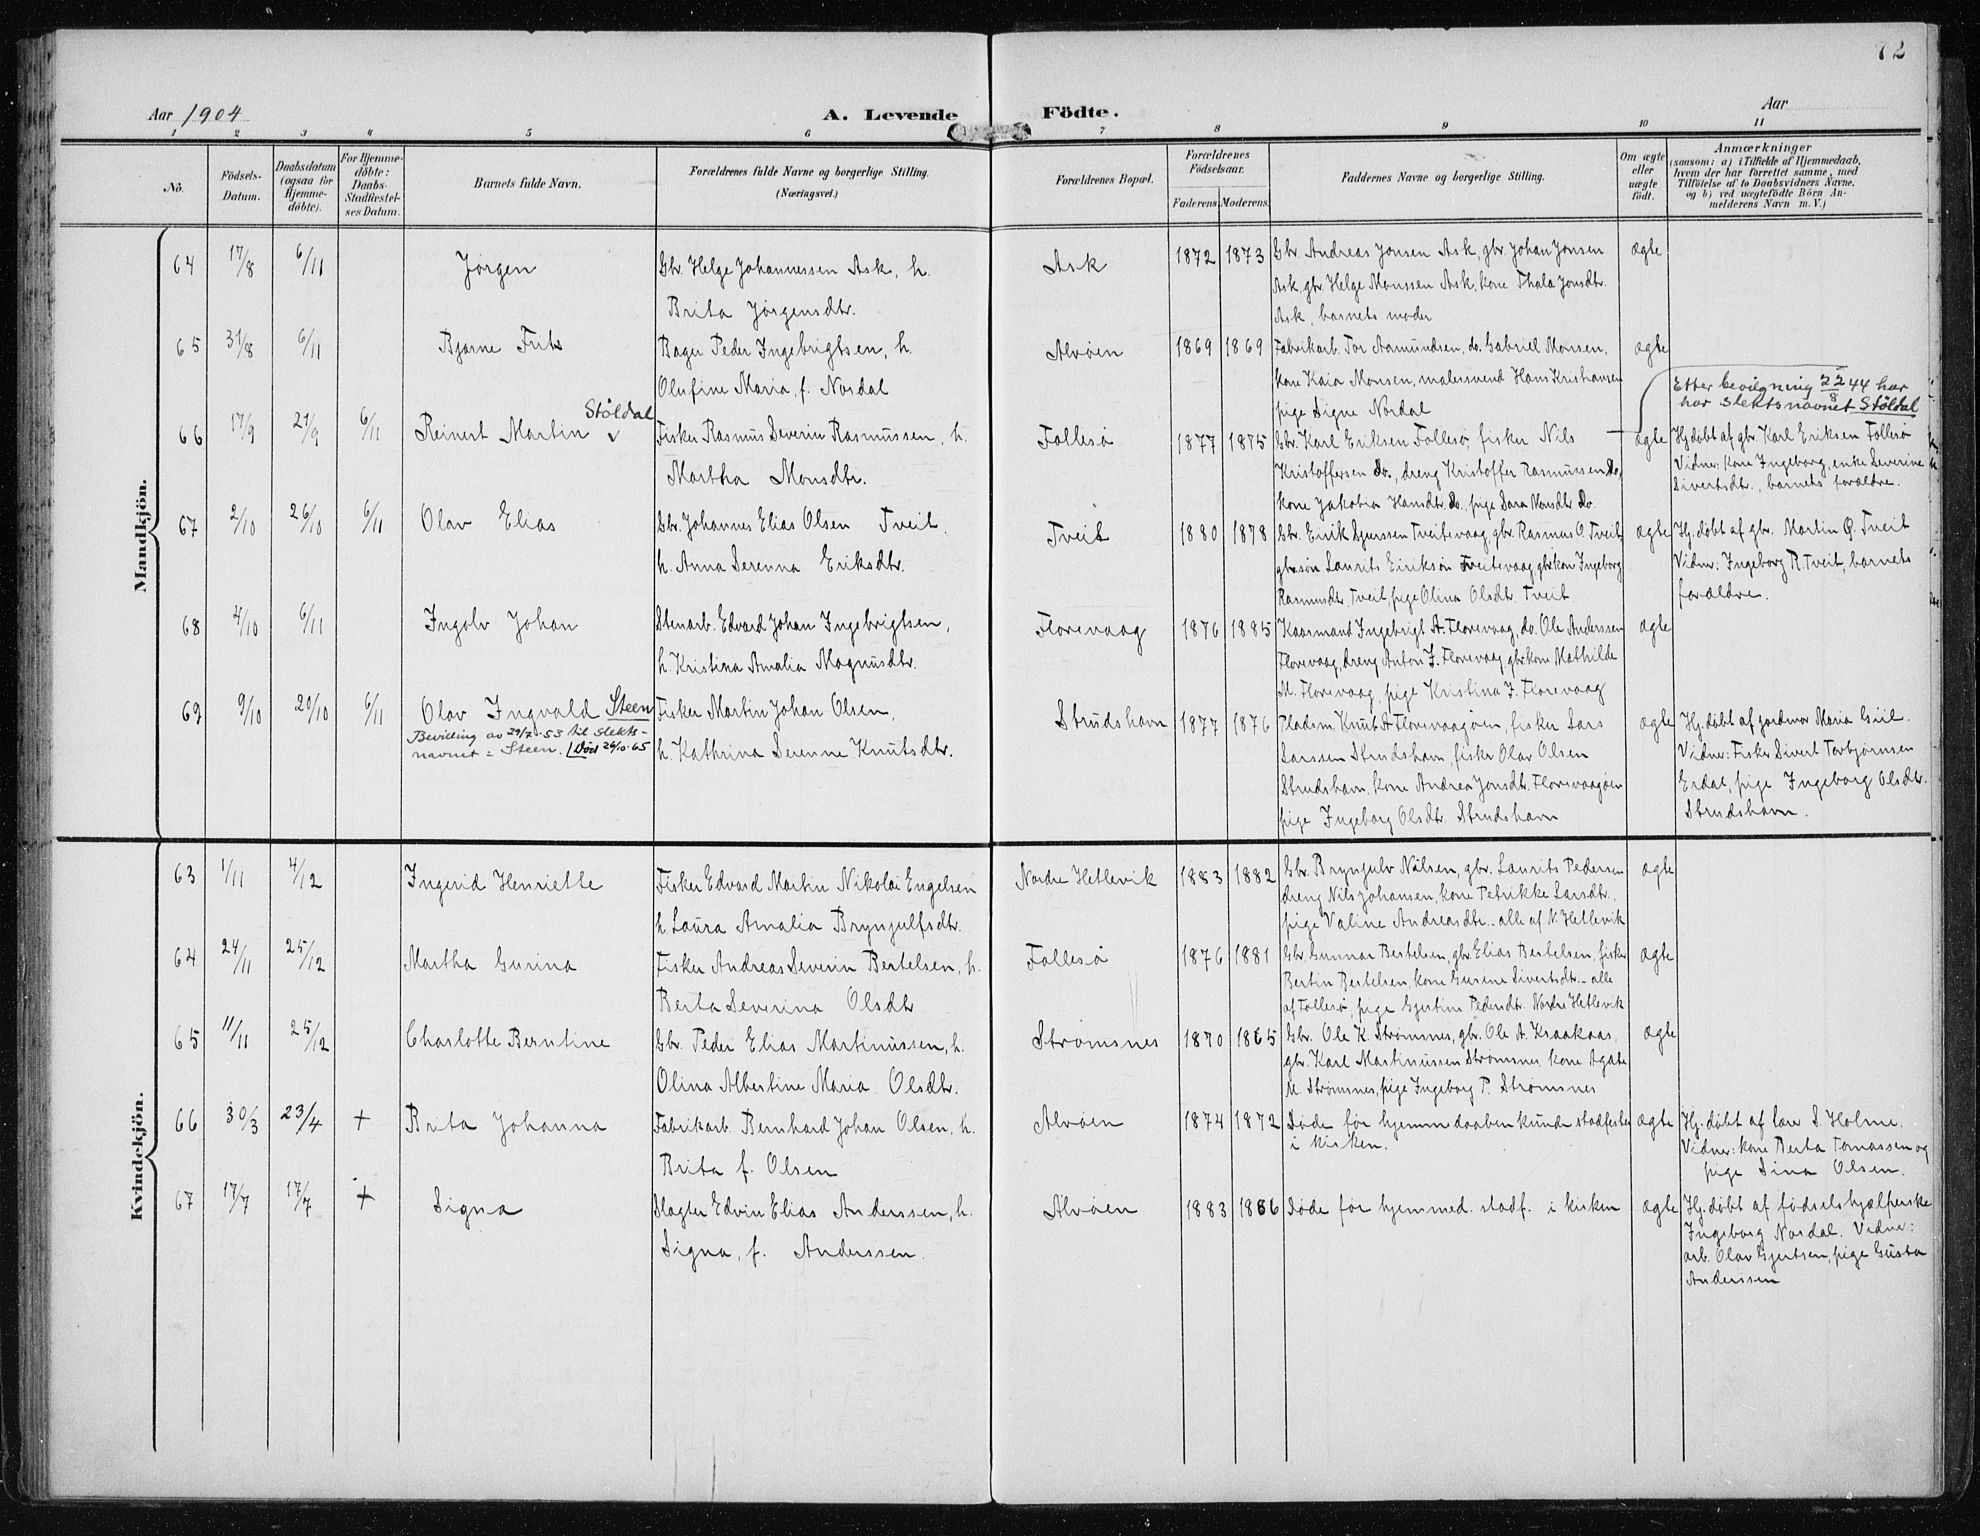 72
Aar 1904
A. Levende Födte.
Aar
1 2 3 4 5 6 7 8 9 10 11
No.
Födsels-Datum.
Daabsdatum (ogsaa for Hjemme-döbte).
For Hjemme-döbte: Daabs-Stadfæstel-ses Datum.
Barnets fulde Navn.
Forældrenes fulde Navne og borgerlige Stilling. (Næringsvei.)
Forældrenes Bopæl.
Forældrenes Födselsaar.
Faderens. Moderens.
Faddernes Navne og borgerlige Stilling.
Om ægte eller uægte födt.
Anmærkninger
(saasom: a) i Tilfælde af Hjemmedaab, hvem der har forrettet samme, med Tilföielse af to Daabsvidners Navne, og b) ved uægtefödte Börn An-melderens Navn m. V.)
Mandkjön.
64 17/8 6/11 Jørgen
Gbr. Helge Johannessen Ask, h.
Brita Jørgensdtr.
Ask 1872 1873
Gbr. Andreas Jonsen Ask, gbr Johan Jonsen
Ask, gbr. Helge Monssen Ask, kone Thala Jonsdtr.
Ask, barnets moder
ægte
65 31/8 6/11 Bjarne Frits
Bager Peder Ingebrigtsen, h.
Olufine Maria, f. Nordal
Alvøen 1869 1869
Fabrikarb. Tor Aamundsen, do. Gabriel Monsen,
kone Kaia Monsen, malersvend Hans Kristiansen
pige Signe Nordal
ægte
66 17/9 27/9 6/11 Reinert Martin Stöldal
Fisker Rasmus Severin Rasmussen, h.
Martha Monsdtr.
Follesø 1877 1875
Gbr. Karl Eriksen Follesø, fisker Nils
Kristoffersen do., dreng Kristoffer Rasmussen do,
kone Jakobia Hansdtr. do, pige Sara Monsdtr do.
ægte
Etter bevilgning 22/8 44 har
har slektsnavnet Stöldal
Hj.døbt af gbr. Karl Eriksen Follesø
Vidner: kone Ingeborg, enke Severine
Sivertsdtr., barnets forældre.
67 2/10 26/10 6/11 Olav Elias
Gbr. Johannes Elias Olsen Tveit.
h. Anna Serenna Eriksdtr.
Tveit 1880 1878
Gbr. Erik Sjurssen Tveitevaag, gbr. Rasmus O. Tveit
gbrsøn Laurits Eiriksøn Tveitevaag gbrkone Ingeborg
Rasmusdtr. Tveit, pige Olina Olsdtr. Tveit
ægte
Hj.døbt af gbr. Martin O. Tveit
Vidner: Ingeborg R. Tveit, barnets
forældre.
68 4/10 6/11 Ingolv Johan
Stenarb. Edvard Johan Ingebrigtsen,
h. Kristina Amalia Magnusdtr.
Florevaag 1876 1885
Kaasmand Ingebrigt A. Florevaag, do. Ole Anderssen
Florevaag, dreng Anton J. Florevaag, gbrkone Mathilde
M. Florevaag, pige Kristina J. Florevaag
ægte
69 9/10 20/10 6/11 Olav Ingvald Steen
Bevilling av 29/7 - 53 til slekts-
navnet = Steen. Død 26/10-65
Fisker Martin Johan Olsen,
h. Kathrina Serenne Knutsdtr.
Strudshavn 1877 1876
Pladsm. Knut A Florevaagøen, fisker Lars
Larssen Strudshavn, fisker Olav Olsen
Strudshavn, kone Andrea Jonsdtr. Florevaagøen
pige Ingeborg Olsdtr. Strudshavn
ægte
Hj.døbt af jordmor Maria Giil.
Vidner: Fisker Sivert Torbjørnsen
Erdal, pige Ingeborg Olsdtr.
Strudshavn.
Kvindekjön.
63 1/11 4/12 Ingerid Henriette
Fisker Edvard Martin Nikolai Engelsen
h. Laura Amalia Brynjulfsdtr.
Nordre Hetlevik 1883 1882
Gbr. Brynjulv Nilsen, gbr. Laurits Pedersen
dreng Nils Johansen, kone Petrikke Larsdtr.,
pige Valine Andreasdtr. - alle af N. Hetlevik
ægte
64 24/11 25/12 Martha Gurina
Fisker Andreas Severin Bertelsen, h.
Berta Severina Olsdtr
Follesø 1876 1881
Gbr. Gunnar Bertelsen, gbr. Elias Bertelsen, fisker
Bertin Bertelsen, kone Gurine Sivertsdtr. - alle
af Follesø, pige Gjertine Pedersdtr. Nordre Hetlevik
ægte
65 11/11 25/12 Charlotte Berntine
Gbr. Peder Elias Martinussen, h.
Olina Albertine Maria Olsdtr.
Strømsnes 1870 1865
Gbr. Ole K. Strømsnes, gbr. Ole A. Kraakaas,
gbr. Karl Martinussen Strømsnes, kone Agate
M. Strømsnes, pige Ingeborg P. Strømsnes
ægte
66 30/3 23/4 + Brita Johanna
Fabrikarb. Bernhard Johan Olsen, h.
Brita f. Olsen
Alvøen 1874 1872
Døde før hjemmedaaben kunde stadfestes
i kirken.
ægte
Hj.døbt af lærer S. Holme.
Vidner: kone Berta Tomassen og
pige Sina Olsen.
67 17/7 17/7 + Signa
Slagter Edvin Elias Anderssen, h.
Signa, f. Anderssen.
Alvøen 1883 1886
Døde før hjemmed. stadf. i kirken
ægte
Hj.døbt af fødselshjælperske
Ingeborg Nordal. Vidner:
arb. Olav Gjertsen, pige Gusta
Anderssen